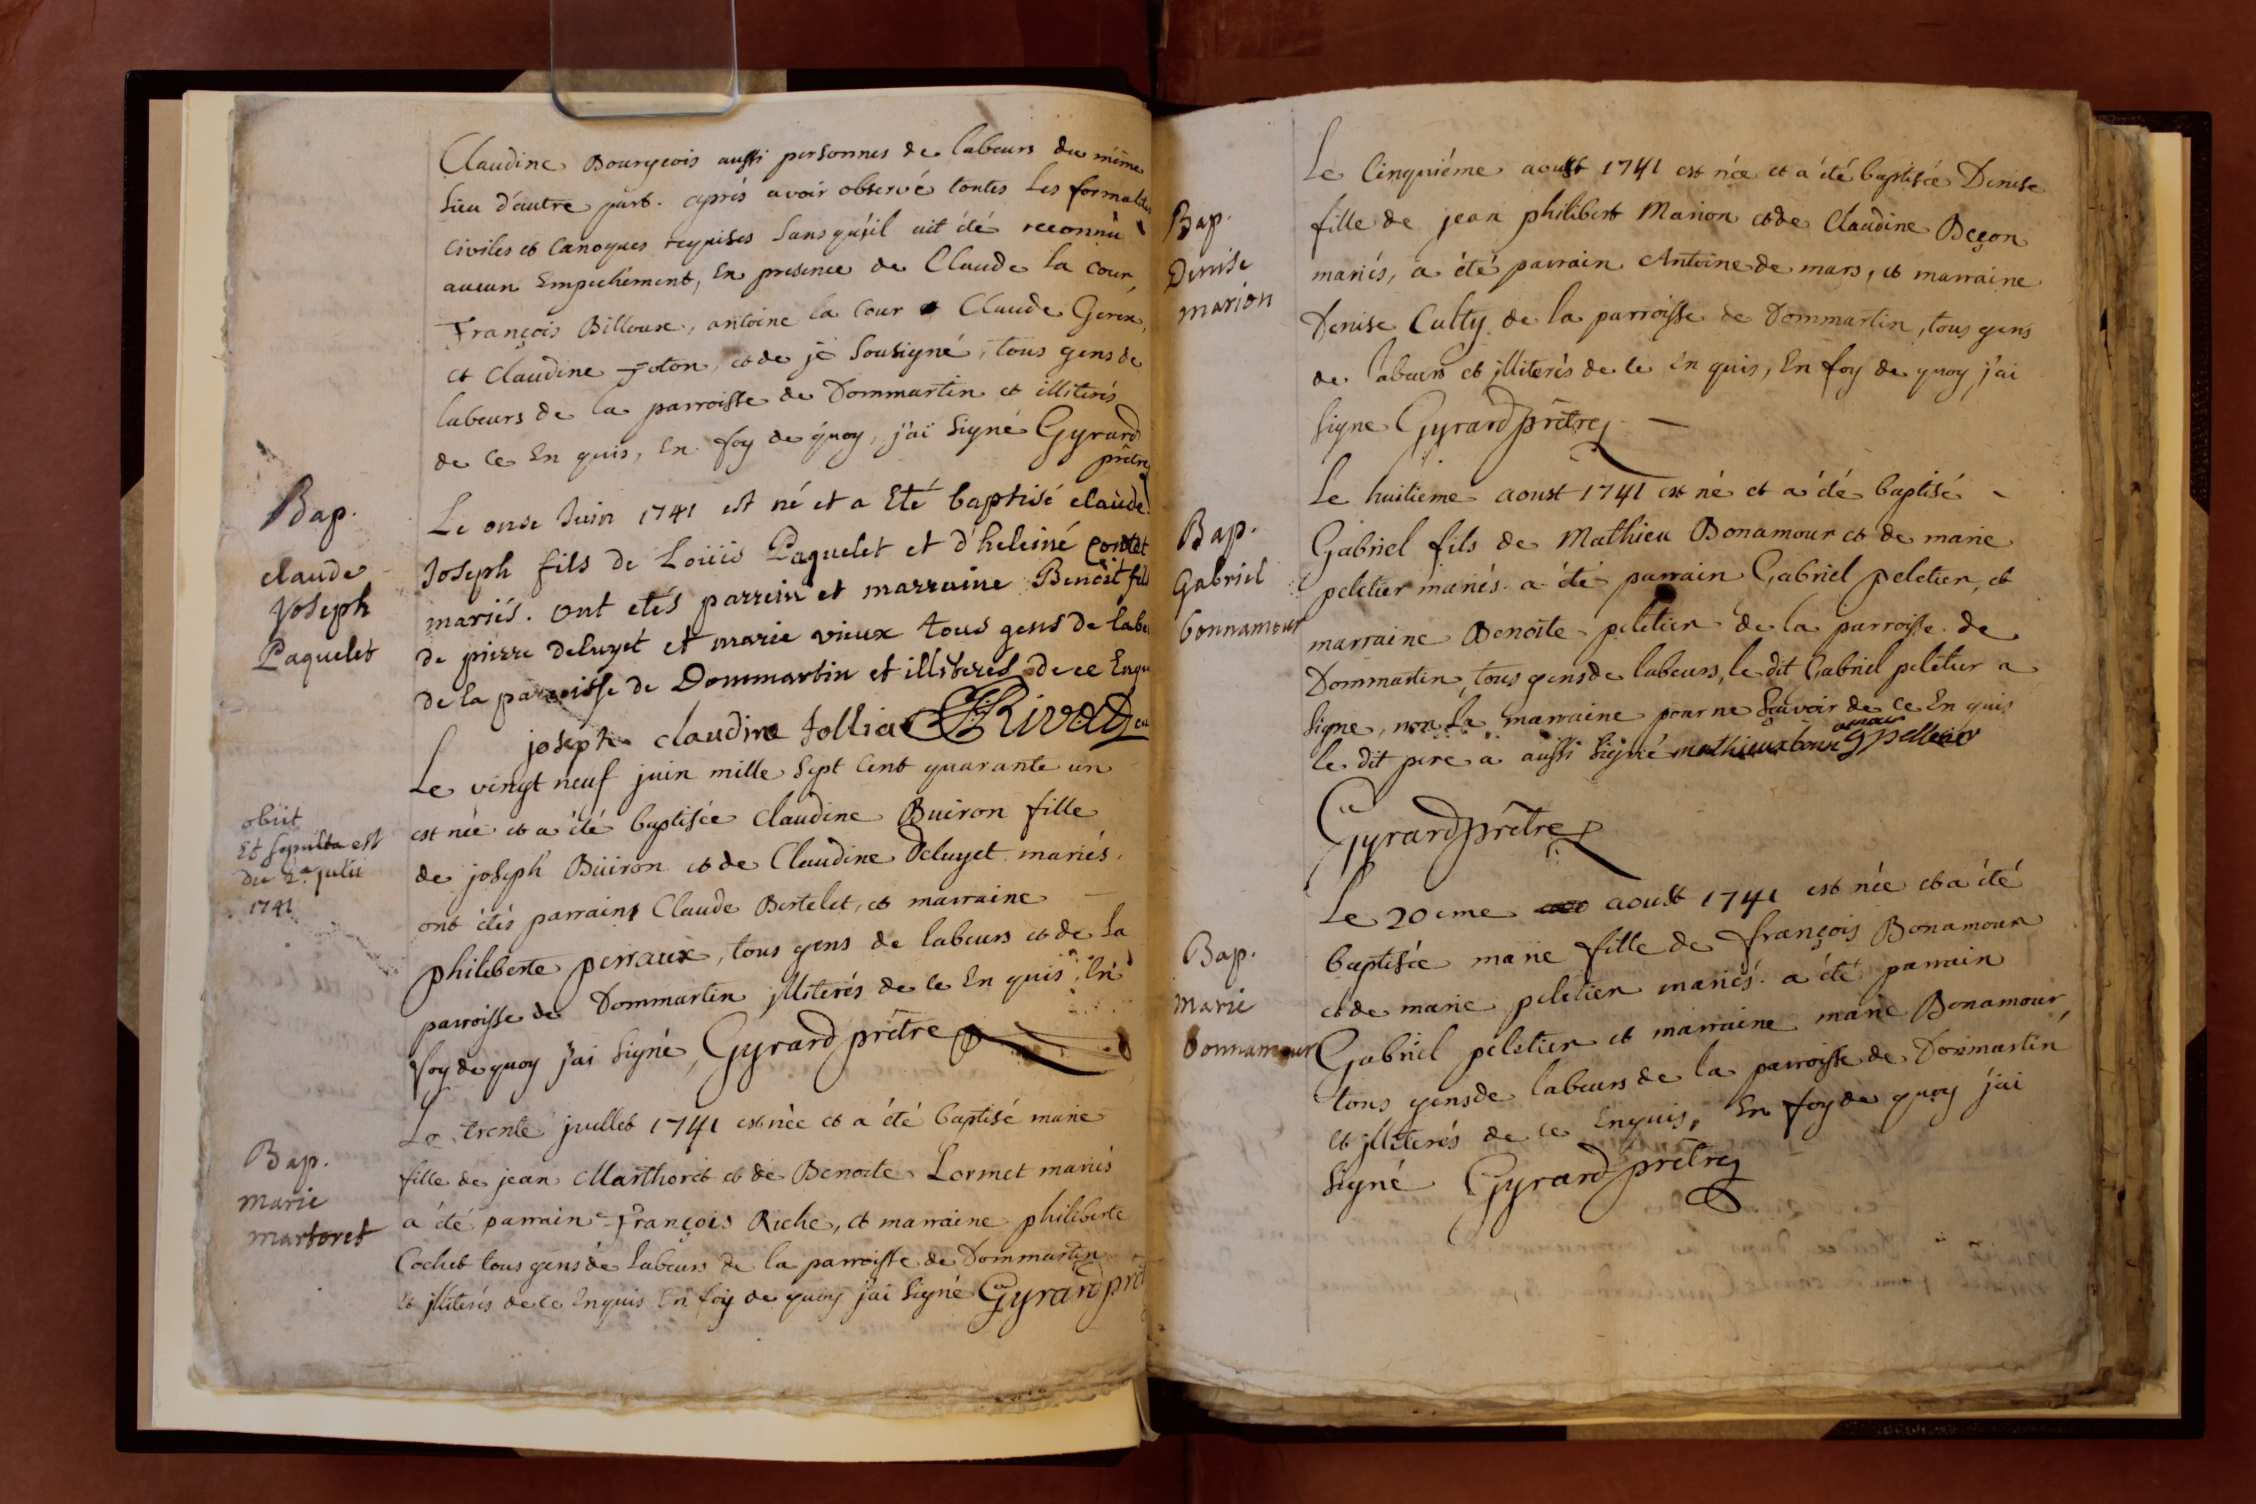 Claudine Bourgeois aussi personnes de labeurs du même
lieu d'autre part. après avoir observé toutes les formalites
civiles et canoques requises sans qu'il ait été reconnu
aucun Empechément, En presence de Claude la Cour,
François Billoux, antoine la Cour Claude
et Claudine, et de je sousigné, tous gens de
labeurs de la parroisse de Dommartin et illiterés
de ce En quis, En foy de quoy, j'ai signé Gyrard
prêtre
Bap.
claude
Joseph
Paquelet
Le onse Juin 1741 est né et a Eté baptisé claude
Joseph fils de Loüis Paquelet et d'heleine
mariés. ont etés parrein et marraine Benoit fils
de pierre deluyet et marie vieux tous gens de labe
de la parroisse de Dommartin et illiteres de ce Enqu
joseph claudine tollia Rivat
obiit
Et sepulta est
die 2a julii
1741
Le vingt neuf juin mille sept cent quarante un
est née et a été baptisée Claudine Buiron fille
de joseph Büiron et de Claudine Deluyet mariés.
ont étés parrains Claude Bertelet, et marraine
philiberte perraux, tous gens de labeurs et de la
parroisse de Dommartin illiterés de ce En quis, En
foy de quoy j'ai signé, Gyrard prêtre
Bap.
Marie
martoret
Le trente juillet 1741 est née et a été baptisé marie
fille de jean Marthoret et de Benoite Lormet mariés
a été parrain François Riche, et marraine philiberte
Cochet tous gens de labeurs de la parroisse de Dommartin
et illiterés de ce Enquis En foy de quoy j'ai signé Gyrard prêt
Bap.
Denise
marion
Le Cinquiéme aoust 1741 est née et a été baptisée Denise
fille de jean philibert Marion et de Claudine Beçon
mariés, a été parrain Antoine de mars, et marraine
Denise Culty de la parroisse de Dommartin, tous gens
de labeurs et illiterés de ce En quis, En foy de quoy j'ai
signe Gyrard prêtre
Bap.
Gabriel
bonnamour
Le huitieme aoust 1741 est né et a été baptisé
Gabriel fils de Mathieu Bonamour et de marie
peletier mariés. a été parrain Gabriel peletier, et
marraine Benoite peletier de la parroisse de
Dommartin, tous gens de labeurs, le dit Gabriel peletier a
signe, non la marraine pour ne sçavoir de ce En quis
le dit pere a aussi signé mathieux bonamour g pelletier
Gyrard prêtre
Bap.
Marie
bonnamour
Le 20eme aoust 1741 est née et a été
baptisée marie fille de françois Bonamour
et de marie peletier mariés. a été parrain
Gabriel peletier et marraine marie Bonamour,
tous gens de labeurs de la parroisse de Dommartin
et illiterés de ce Enquis, En foy de quoy j'ai
signé Gyrard prêtre